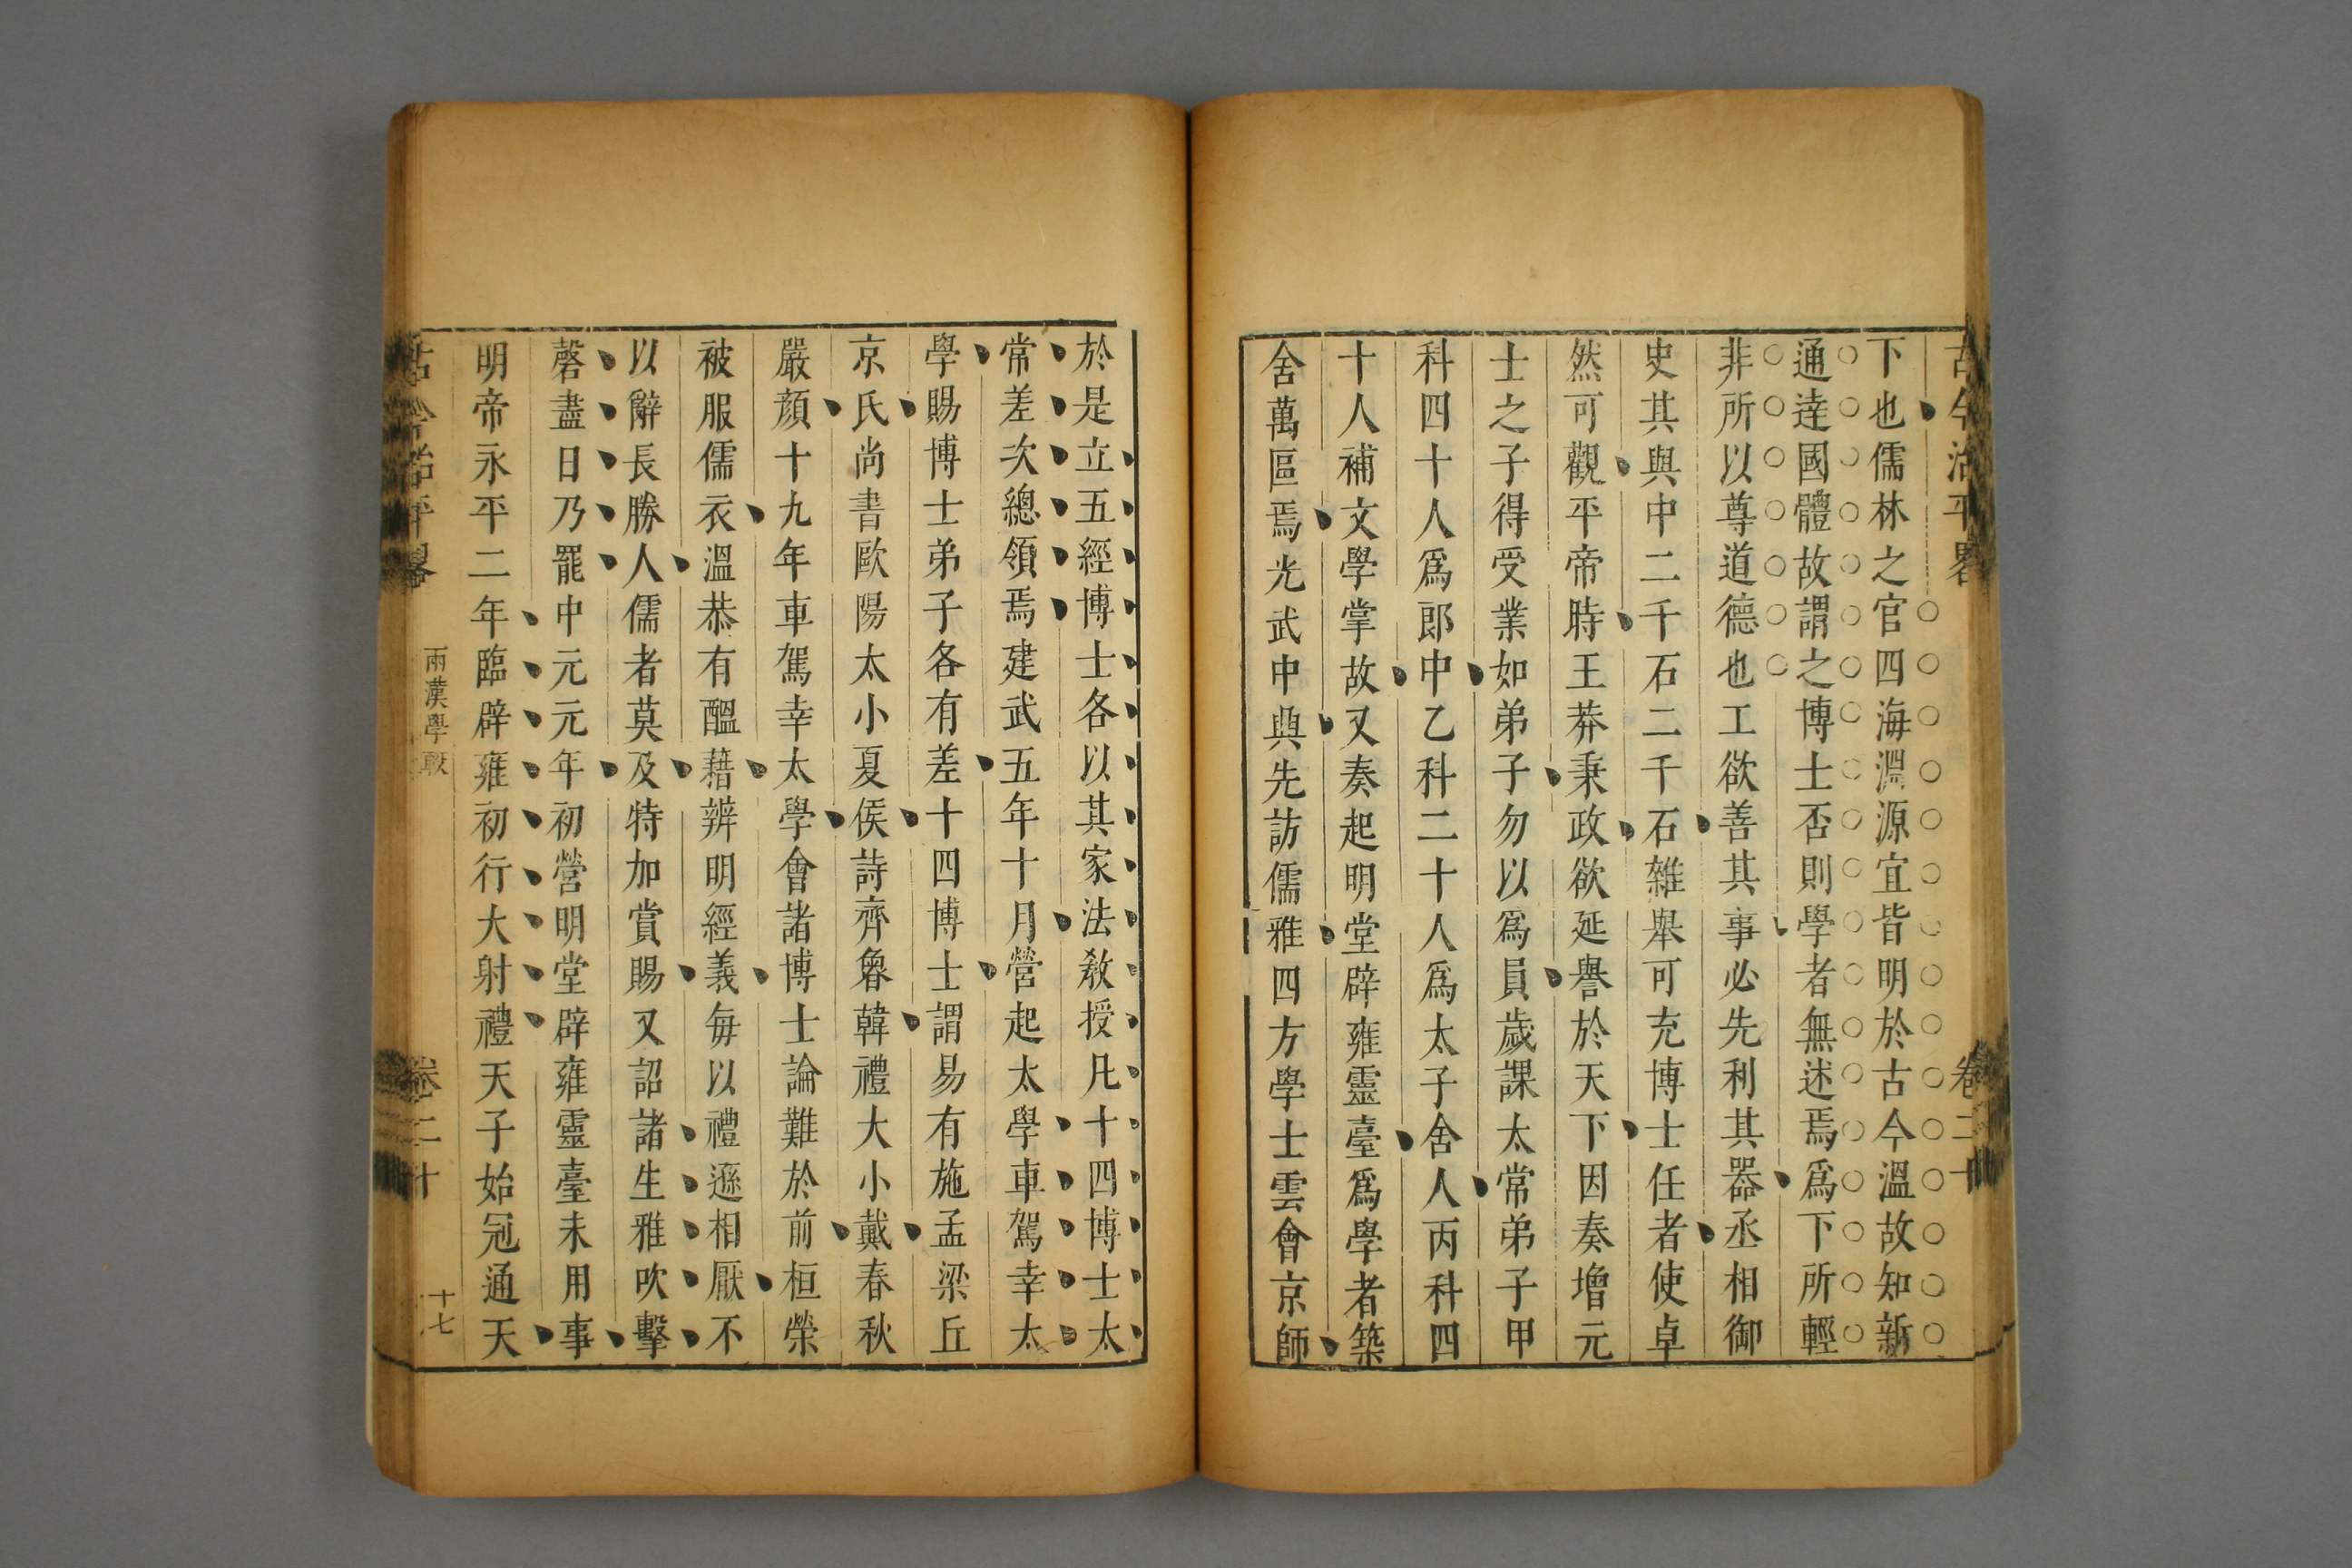 古今治平畧
卷二十
下也儒林之官四海淵源宜皆明於古今溫故知新
通達國體故謂之博士否則學者無述焉爲下所輕
非所以尊道德也工欲善其事必先利其器丞相御
史其與中二千石二千石雜舉可充博士任者使卓
然可觀平帝時王莽秉政欲延譽於天下因奏增元
士之子得受業如弟子勿以爲員歲課太常弟子甲
科四十人爲郎中乙科二十人爲太子舍人丙科四
十人補文學掌故又奏起明堂辟雍靈臺爲學者築
舍萬區焉光武中興先訪儒雅四方學士雲會京師
於是立五經博士各以其家法教授凡十四博士太
常差次總領焉建武五年十月營起太學車駕幸太
學賜博士弟子各有差十四博士謂易有施孟梁丘
京氏尚書歐陽太小夏侯詩齊魯韓禮大小戴春秋
嚴顏十九年車駕幸太學會諸博士論難於前桓榮
被服儒衣溫恭有醞藉辨明經義每以禮遜相厭不
以辭長勝人儒者莫及特加賞賜又詔諸生雅吹擊
磬盡日乃罷中元元年初營明堂辟雍靈臺未用事
明帝永平二年臨辟雍初行大射禮天子始冠通天
古今治平畧
兩漢學
卷二十
十七